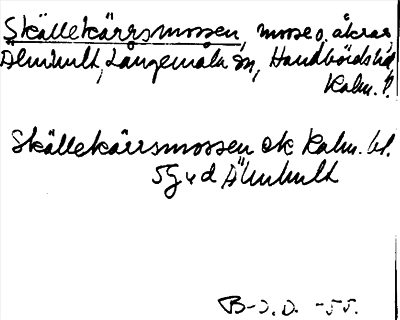 Skällekärrsmossen, mosse o. åkrar,
Älmhult, Långemåla sn, Handbörds hd,
Kalm. l.
Skällekärrsmossen ek Kalm. bl.
5g v d Älmhult
B-J.D. -55.